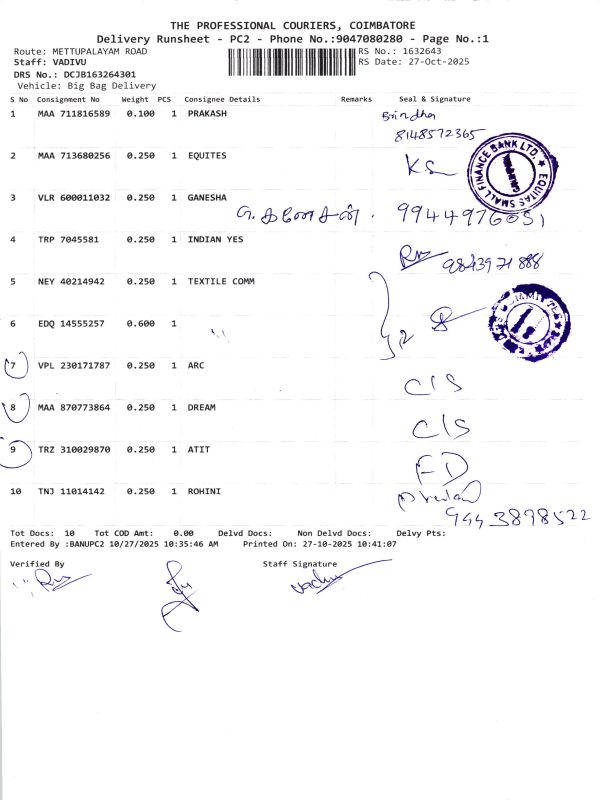 THE PROFESSIONAL COURIERS, COIMBATORE
Delivery Runsheet - PC2 - Phone No.:9047080280 - Page No.:1
Route: METTUPALAYAM ROAD
RS No.: 1632643
Staff: VADIVU
RS Date: 27-Oct-2025
DRS No.: DCJB163264301
Vehicle: Big Bag Delivery
S No Consignment No Weight PCS Consignee Details Remarks Seal & Signature
1 MAA 711816589 0.100 1 PRAKASH Brindha
8148572365
2 MAA 713680256 0.250 1 EQUITES
EQUITAS SMALL FINANCE BANK LTD.
3 VLR 600011032 0.250 1 GANESHA
கணேசன். 9944976051
4 TRP 7045581 0.250 1 INDIAN YES
9843971888
5 NEY 40214942 0.250 1 TEXTILE COMM
6 EDQ 14555257 0.600 1 "
2
7 VPL 230171787 0.250 1 ARC
C/S
8 MAA 870773864 0.250 1 DREAM
C/S
9 TRZ 310029870 0.250 1 ATIT
FD
10 TNJ 11014142 0.250 1 ROHINI
9443898522
Tot Docs: 10 Tot COD Amt: 0.00 Delvd Docs: Non Delvd Docs: Delvy Pts:
Entered By :BANUPC2 10/27/2025 10:35:46 AM Printed On: 27-10-2025 10:41:07
Verified By
Staff Signature